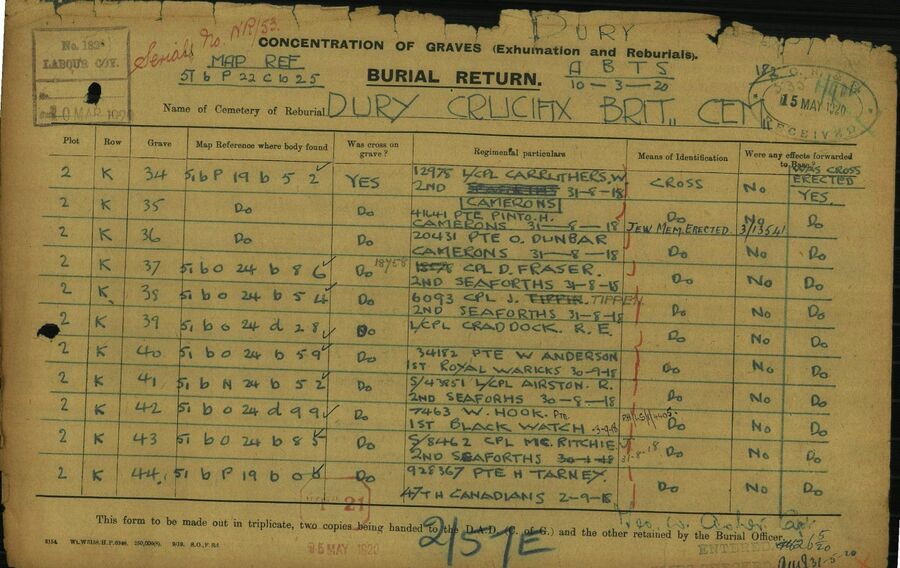 DURY
Serial No NR/53.
No. 182
LABOUR COY.
CONCENTRATION OF GRAVES (Exhumation and Reburials).
MAP REF
51 b P 22 c 10 25
BURIAL RETURN.
A B T S
10 - 3 - 20
15 MAY 1920
RECEIVED
Name of Cemetery of Reburial DURY CRUCIFIX BRIT., CEM
Plot Row Grave Map Reference where body found Was cross on grave? Regimental particulars Means of Identification Were any effects forwarded to Base?
WAS CROSS ERECTED
2 K 34 51 b P 19 b 5 2 YES 12975 L/CPL CARRUTHERS, W CROSS No YES.
2ND SEAFORTHS 31-8-18
CAMERONS
2 K 35 Do Do 41641 PTE PINTO. H. Do No Do
CAMERONS 31-8-18 JEW MEM. ERECTED. 3/13541
2 K 36 Do Do 20431 PTE O. DUNBAR Do No Do
CAMERONS 31-8-18
2 K 37 51 b O 24 b 8 6 Do 18758 CPL D. FRASER. Do No Do
2ND SEAFORTHS 31-8-18
2 K 38 51 b O 24 b 5 4 Do 6093 CPL J. TIPPIN TIPPEN. Do No Do
2ND SEAFORTHS 31-8-18
2 K 39 51 b O 24 d 2 8 Do L/CPL CRADDOCK. R. E. Do No Do
2 K 40 51 b O 24 b 5 9 Do 34182 PTE W ANDERSON Do No Do
1ST ROYAL WARICKS 30-9-18
2 K 41 51 b N 24 b 5 2 Do S/43851 L/CPL AIRSTON. R. Do No Do
2ND SEAFORHS 30-8-18
2 K 42 51 b O 24 d 9 9 Do 7463 W. HOOK. Pte. Do No Do
1ST BLACK WATCH -3-9-18
2 K 43 51 b O 24 b 8 5 Do S/8462 CPL MC. RITCHIE Do No Do
2ND SEAFORTHS 30-1-18 31-8-18
2 K 44. 51 b P 19 b 0 8 Do 928367 PTE H TARNEY. Do No Do
47TH CANADIANS 2-9-18
21
This form to be made out in triplicate, two copies being handed to the D.A.D. (C. of G.) and the other retained by the Burial Officer.
25 MAY 1920
2/57E
ENTERED